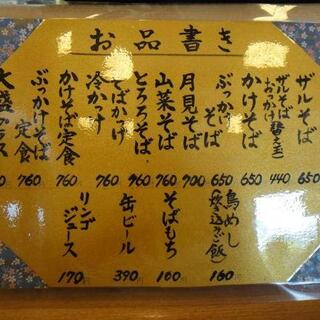 お品書き
ザルそば
650
ザルそば
おかわり(替え玉)
440
かけそば
650
ぶっかけ
そば
650
月見そば
700
山菜そば
960
とろろそば
760
そばがけ
冷かけ
760
かけそば定食
760
ぶっかけそば
定食
760
大盛プラス
鳥めし
(炊込みご飯)
160
そばもち
100
缶ビール
390
リンゴ
ジュース
170